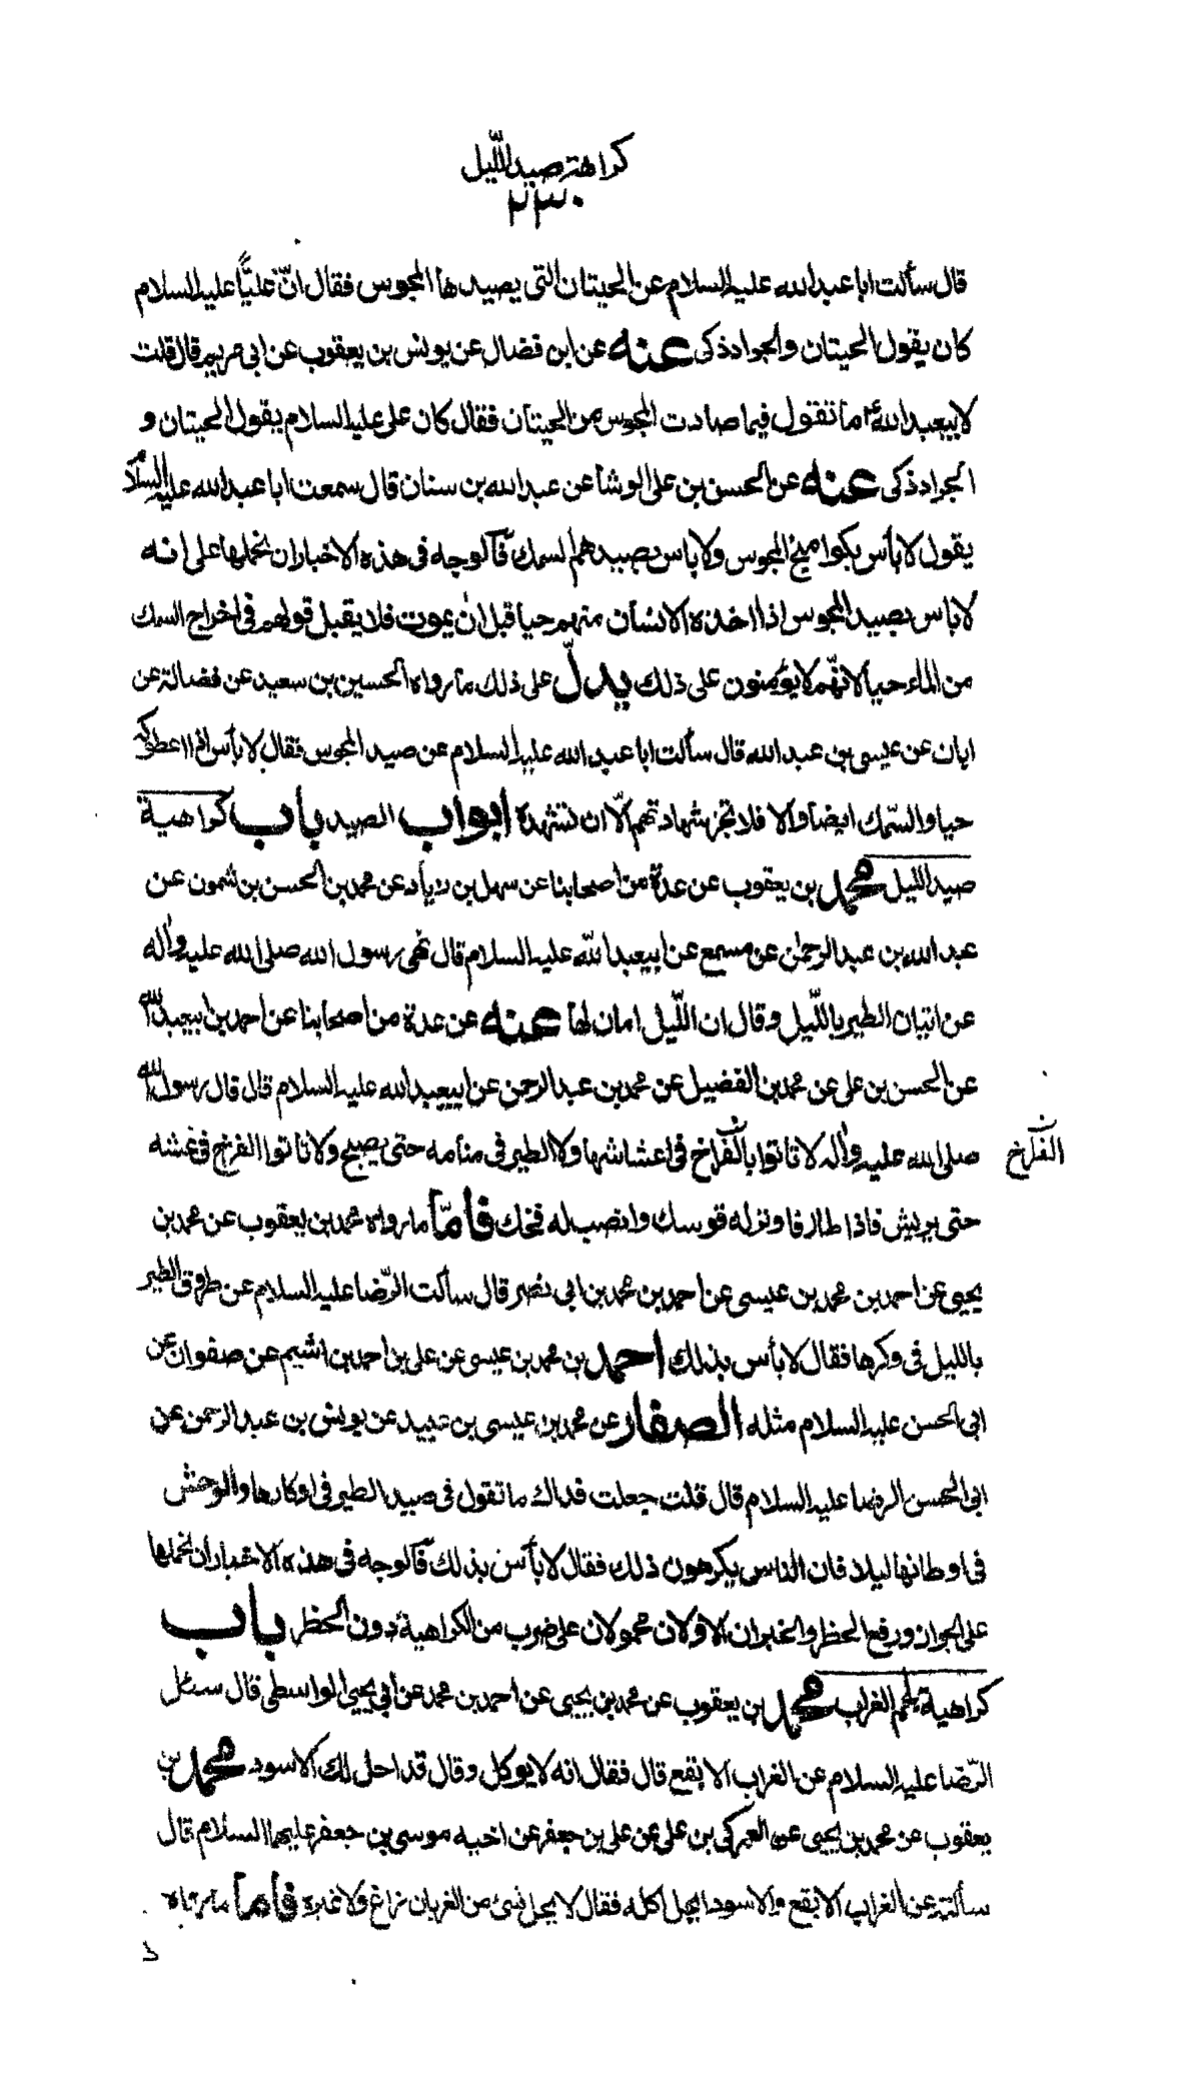 كراهة صيد الليل
٢٣٠
قال سألت ابا عبد الله عليه السلام عن الحيتان التى يصيدها المجوس فقال انّ عليًّا عليه السلام
كان يقول الحيتان والجراد ذكى عنه عن ابن فضال عن يونس بن يعقوب عن ابى مريم قال قلت
لابيعبد الله ما تقول فيما صادت المجوس من الحيتان فقال كان على عليه السلام يقول الحيتان و
الجراد ذكى عنه عن الحسن بن على الوشا عن عبد الله بن سنان قال سمعت ابا عبد الله عليه السلام
يقول لا بأس بكواميخ المجوس ولا باس بصيدهم السمك فالوجه فى هذه الاخبار ان نحملها على انه
لا باس بصيد المجوس اذا اخذه الانسان منهم حيا قبل ان يموت فلا يقبل قولهم فى اخراج السمك
من الماء حيا لانّهم لا يؤمنون على ذلك يدلّ على ذلك ما رواه الحسين بن سعيد عن فضالة عن
ابان عن عيسى بن عبد الله قال سألت ابا عبد الله عليه السلام عن صيد المجوس فقال لا بأس اذا اعطوكه
حيا والسّمك ايضا والا فلا تجز شهادتهم الّا ان تشهده ابواب الصيد باب كراهية
صيد الليل محمد بن يعقوب عن عدة من اصحابنا عن سهل بن زياد عن محمد بن الحسن بن شمون عن
عبد الله بن عبد الرحمن عن مسمع عن ابيعبد الله عليه السلام قال نهى رسول الله صلى الله عليه واله
عن اتيان الطير بالليل وقال ان اللّيل امان لها عنه عن عدة من اصحابنا عن احمد بن ابيعبد الله
عن الحسن بن على عن محمد بن الفضيل عن محمد بن عبد الرحمن عن ابيعبد الله عليه السلام قال قال رسول الله
صلى الله عليه واله لا تاتوا بالفراخ فى اعشاشها ولا الطير فى منامه حتى يصبح ولا تاتوا الفرخ فى عشه
الفراخ
حتى يريش فاذا طار فاوتر له قوسك وانصب له فخك فامّا ما رواه محمد بن يعقوب عن محمد بن
يحيى عن احمد بن محمد بن عيسى عن احمد بن محمد بن ابى نصر قال سألت الرّضا عليه السلام عن طروق الطير
بالليل فى وكرها فقال لا بأس بذلك احمد بن محمد بن عيسى عن على بن احمد بن اشيم عن صفوان عن
ابى الحسن عليه السلام مثله الصفار عن محمد بن عيسى بن عبيد عن يونس بن عبد الرحمن عن
ابى الحسن الرضا عليه السلام قال قلت جعلت فداك ما تقول فى صيد الطير فى اوكارها والوحش
فى اوطانها ليلا فان الناس يكرهون ذلك فقال لا بأس بذلك فالوجه فى هذه الاخبار ان نحملها
على الجواز ورفع الحظر والخبران الاولان محمولان على ضرب من الكراهية دون الحظر باب
كراهية لحم الغراب محمد بن يعقوب عن محمد بن يحيى عن احمد بن محمد عن ابى يحيى الواسطى قال سئل
الرّضا عليه السلام عن الغراب الابقع قال فقال انه لا يوكل وقال قد احل لك الاسود محمد بن
يعقوب عن محمد بن يحيى عن العمركى بن على عن على بن جعفر عن اخيه موسى بن جعفر عليهما السلام قال
سألته عن الغراب الابقع والاسود ايحل اكله فقال لا يحل شئ من الغربان زاغ ولا غيره فاما ما رواه